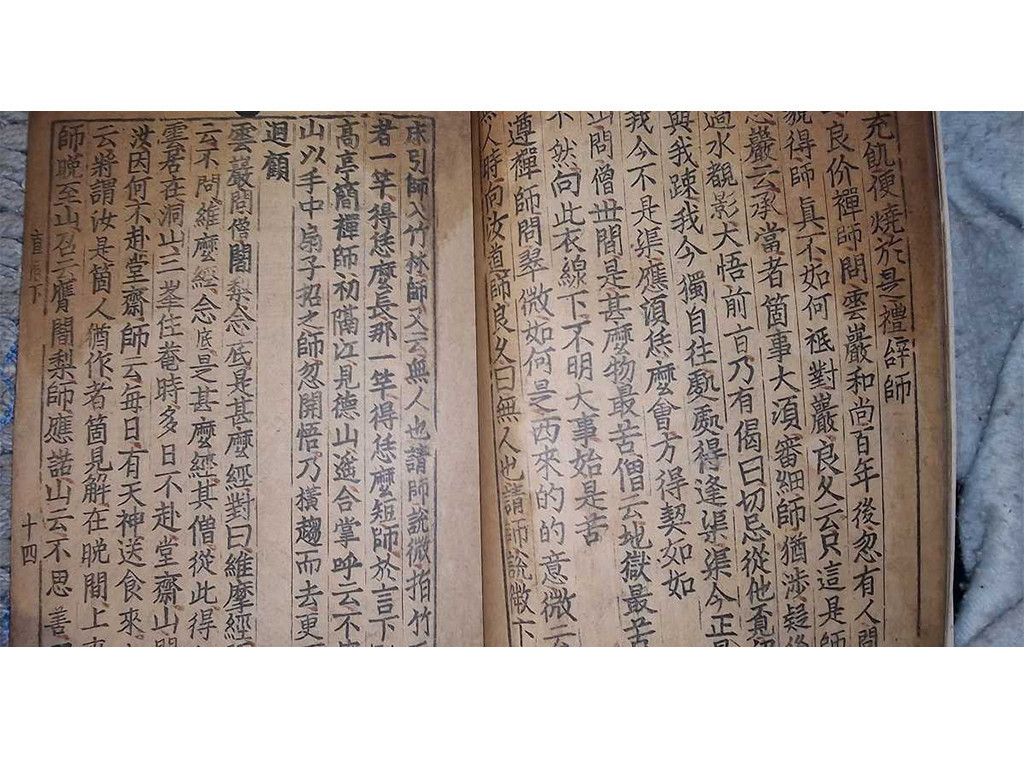 充飢便燒於是禮辞師
良价禪師問雲巖和尚百年後忽有人問
貌得師真不如何祗對巖良久云只這是師
巖云承當者箇事大湏審細師猶涉疑後
過水覩影大悟前㫖乃有偈曰切忌從他覓
與我踈我今獨自往處處得逢渠渠今正是
我今不是渠應湏恁麽會方得契如如
山問僧世間是甚麽物最苦僧云地獄最苦
不然向此衣線下不明大事始是苦
遵禪師問翠微如何是西來的的意微云
無人時向汝道師良久曰無人也請師說微下
床引師入竹林師又云無人也請師說微拍竹
者一竿得恁麽長那一竿得恁麽短師於言下
高亭簡禪師初隔江見德山遥合掌呼云不
山以手中扇子招之師忽開悟乃橫趨而去更
迴顧
雲巖問僧闍梨念底是甚麽經對曰維摩經
云不問維麽經念底是甚麽經其僧從此得
雲居在洞山三峯住菴時多日不赴堂齋山問
汝因何不赴堂齋師云每日有天神送食來
云將謂汝是箇人猶作者箇見解在晩間上來
師晩至山召云膺闍梨師應諾山云不思善
直指下
十四